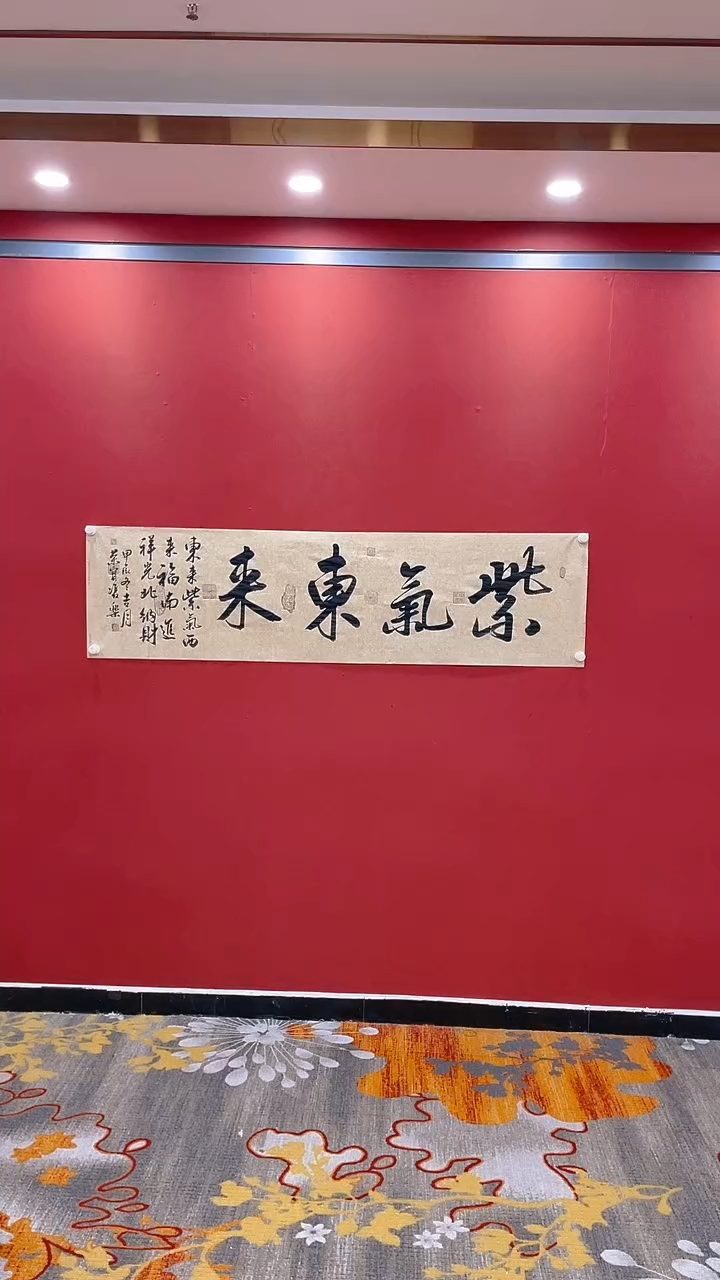 紫氣東来
東来紫氣西
来福南進
祥光北納財
甲辰冬吉月